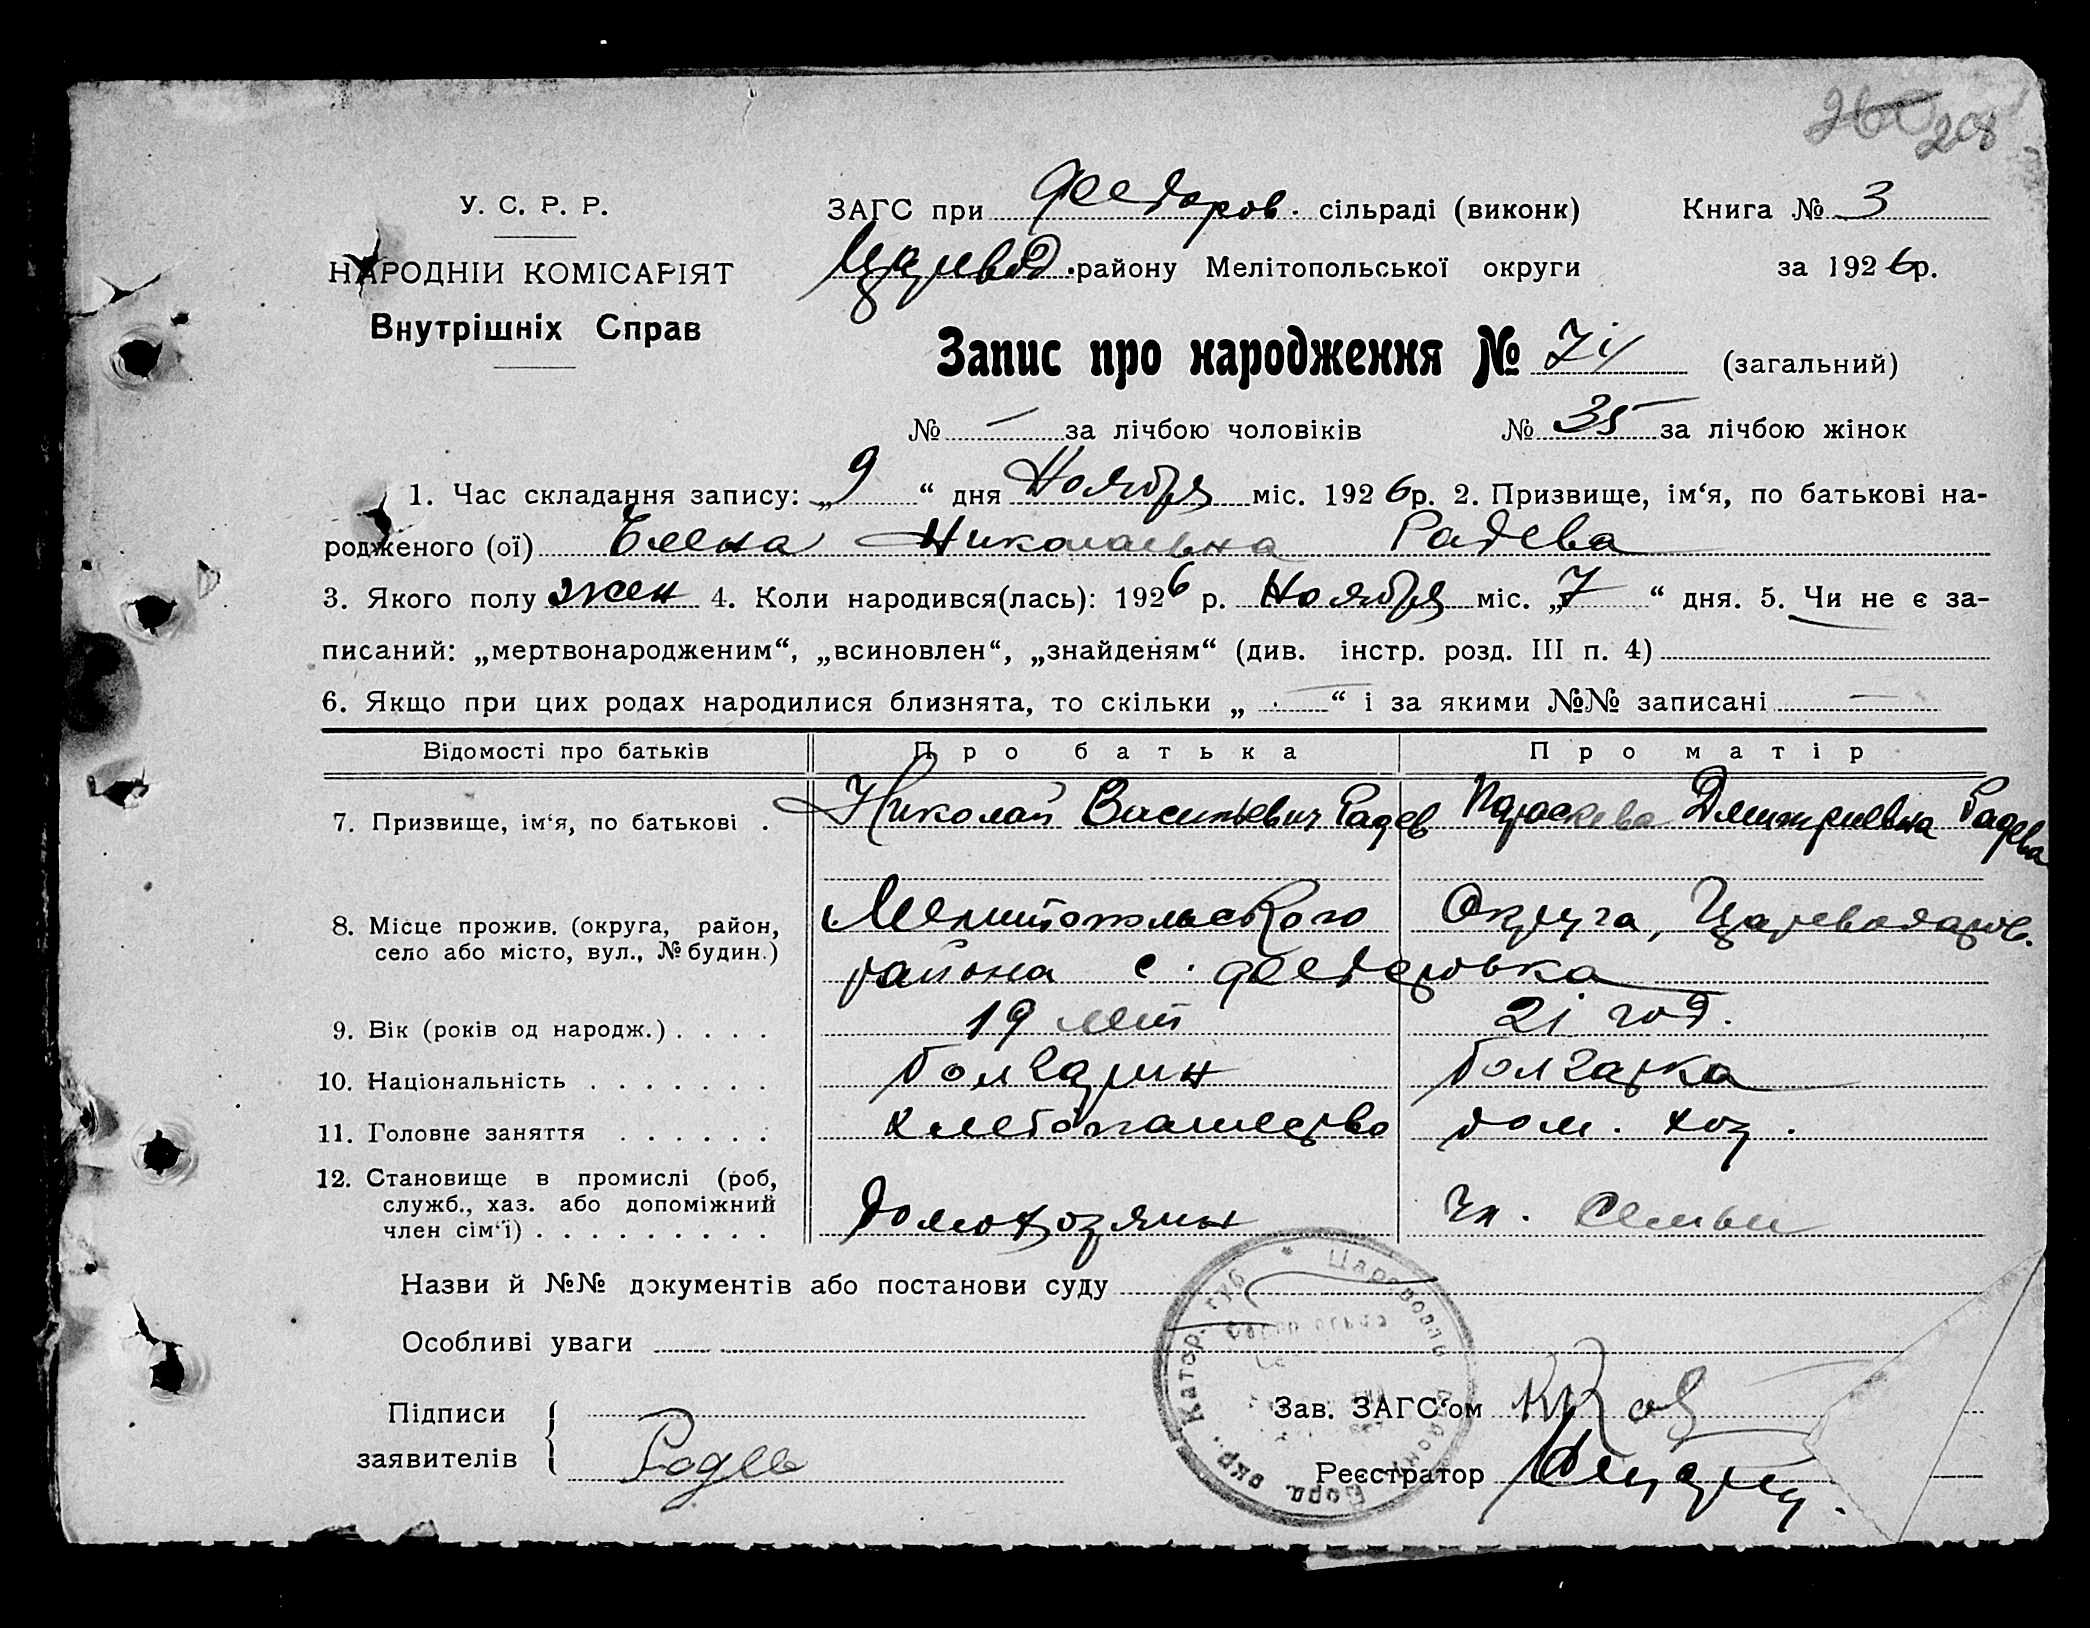 260 208
У. С. Р. Р.
НАРОДНІЙ КОМІСАРІЯТ
Внутрішніх Справ
ЗАГС при Федоров. сільраді (виконк) Книга № 3
Царевод. району Мелітопольської округи за 1926 р.
Запис про народження № 74 (загальний)
№ — за лічбою чоловіків № 35 за лічбою жінок
1. Час складання запису: „9“ дня Ноября міс. 1926 р. 2. Призвище, ім‘я, по батькові на-
родженого (ої) Елена Николаевна Радева
3. Якого полу жен 4. Коли народився(лась): 1926 р. Ноября міс. „7“ дня. 5. Чи не є за-
писаний: „мертвонародженим“, „всиновлен“, „знайденям“ (див. інстр. розд. III п. 4)
6. Якщо при цих родах народилися близнята, то скільки „ — “ і за якими №№ записані —
Відомості про батьків Про батька Про матір
7. Призвище, ім‘я, по батькові . Николай Васильевич Радев Параскева Дмитриевна Радева
8. Місце прожив. (округа, район, село або місто, вул., № будин.) Мелитопольского Округа, Цареводаров.
района с. Федоровка
9. Вік (років од народж.) . . . . 19 лет 21 год.
10. Національність . . . . . . . болгарин болгарка
11. Головне заняття . . . . . . хлебопашество дом. хоз.
12. Становище в промислі (роб, служб., хаз. або допоміжний член сім‘ї) . . . . . . . . . домохозяин чл. семьи
Назви й №№ документів або постанови суду
Особливі уваги
Підписи
заявителів Радев
Зав. ЗАГС‘ом
Реєстратор